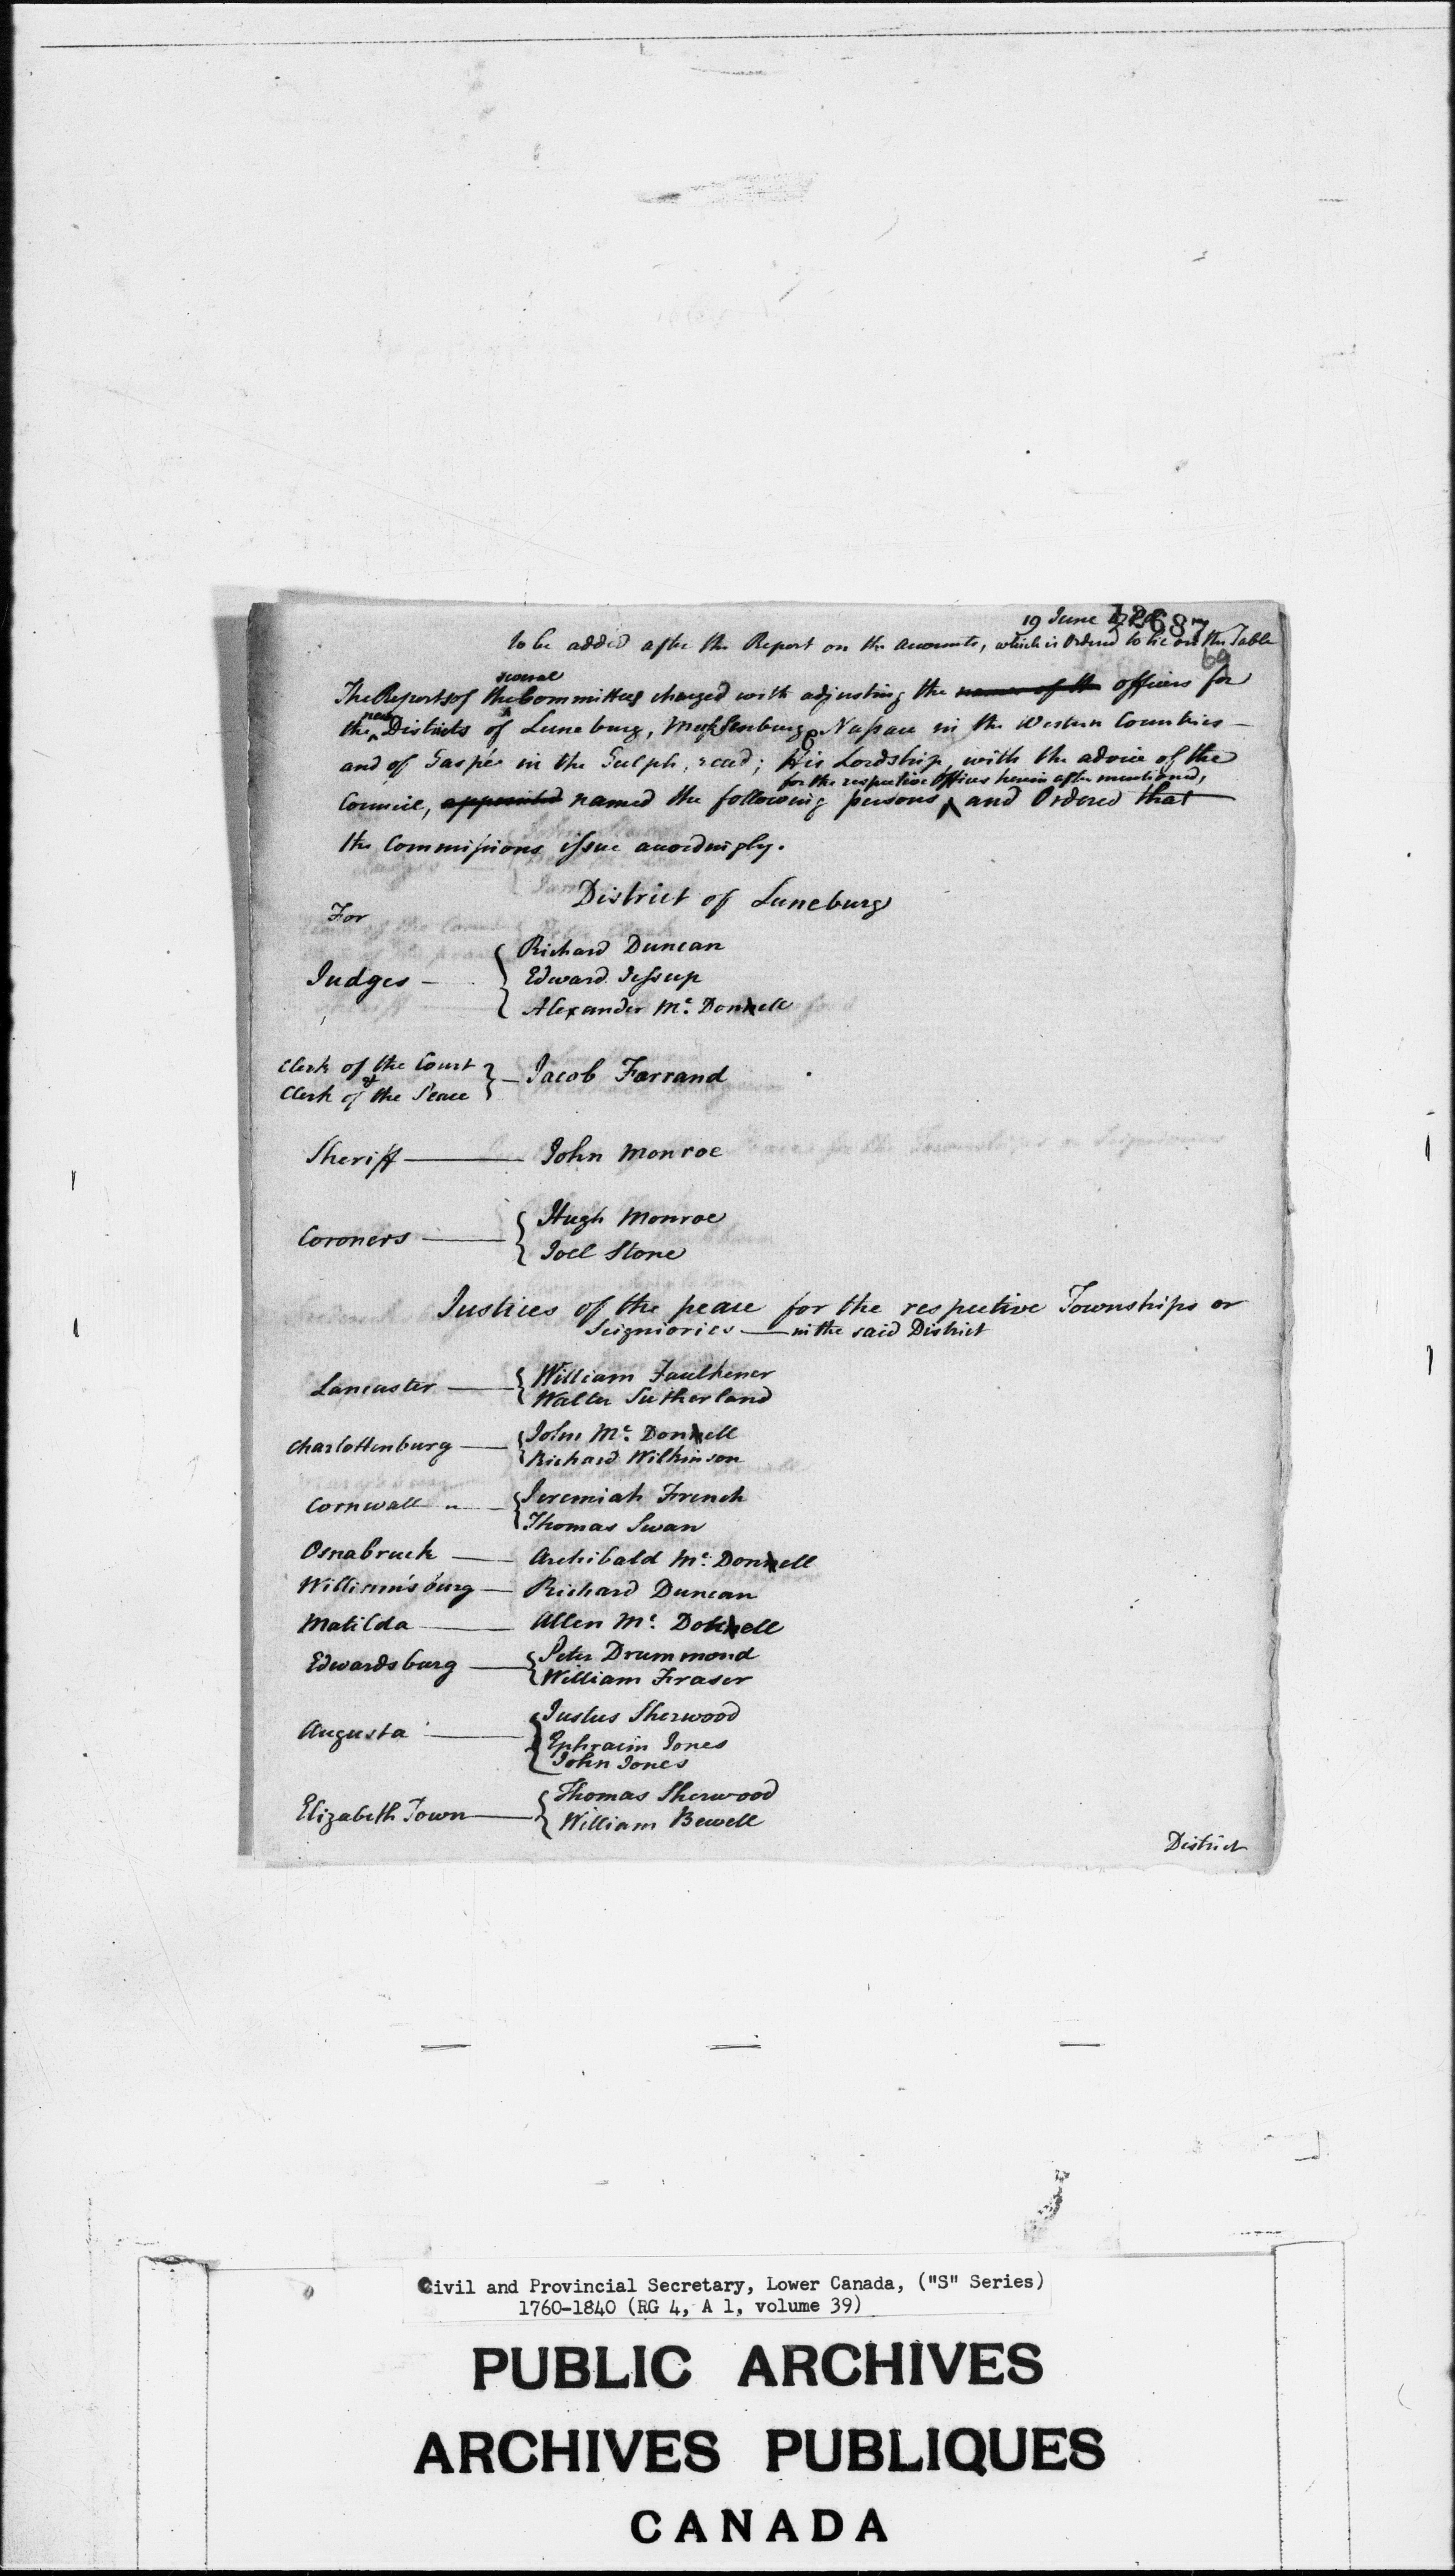 19 June
to be added after the Report on the accounts, which is Ordered to lie on the Table
69
several
The Reports of the Committees charged with adjusting the names of the officers for
new
the Districts of Luneburg, Mecklenburg & Nassau in the Western Countries -
and of Gaspé in the Gulph, read; His Lordship, with the advice of the
for the respective Offices herein after mentioned,
Council, appointed named the following persons, and Ordered that
the Commissions issue accordingly.
District of Luneburg
For
Judges - { Richard Duncan
Edward Jessup
Alexander Mc. Donnell
Clerk of the Court
&
Clerk of the Peace } - Jacob Farrand
Sheriff - John Monroe
Coroners - { Hugh Monroe
Joel Stone
Justices of the peace for the respective Townships or
Seigniories - in the said District
Lancaster - { William Faulkener
Walter Sutherland
Charlottenburg - { John Mc. Donnell
Richard Wilkinson
Cornwall - { Jeremiah French
Thomas Swan
Osnabruck - Archibald Mc. Donnell
Williamsburg - Richard Duncan
Matilda - Allen Mc. Donnell
Edwardsburg - { Peter Drummond
William Fraser
Augusta - { Justus Sherwood
Ephraim Jones
John Jones
Elizabeth Town - { Thomas Sherwood
William Bewell
District
Civil and Provincial Secretary, Lower Canada, ("S" Series)
1760-1840 (RG 4, A 1, volume 39)
PUBLIC ARCHIVES
ARCHIVES PUBLIQUES
CANADA